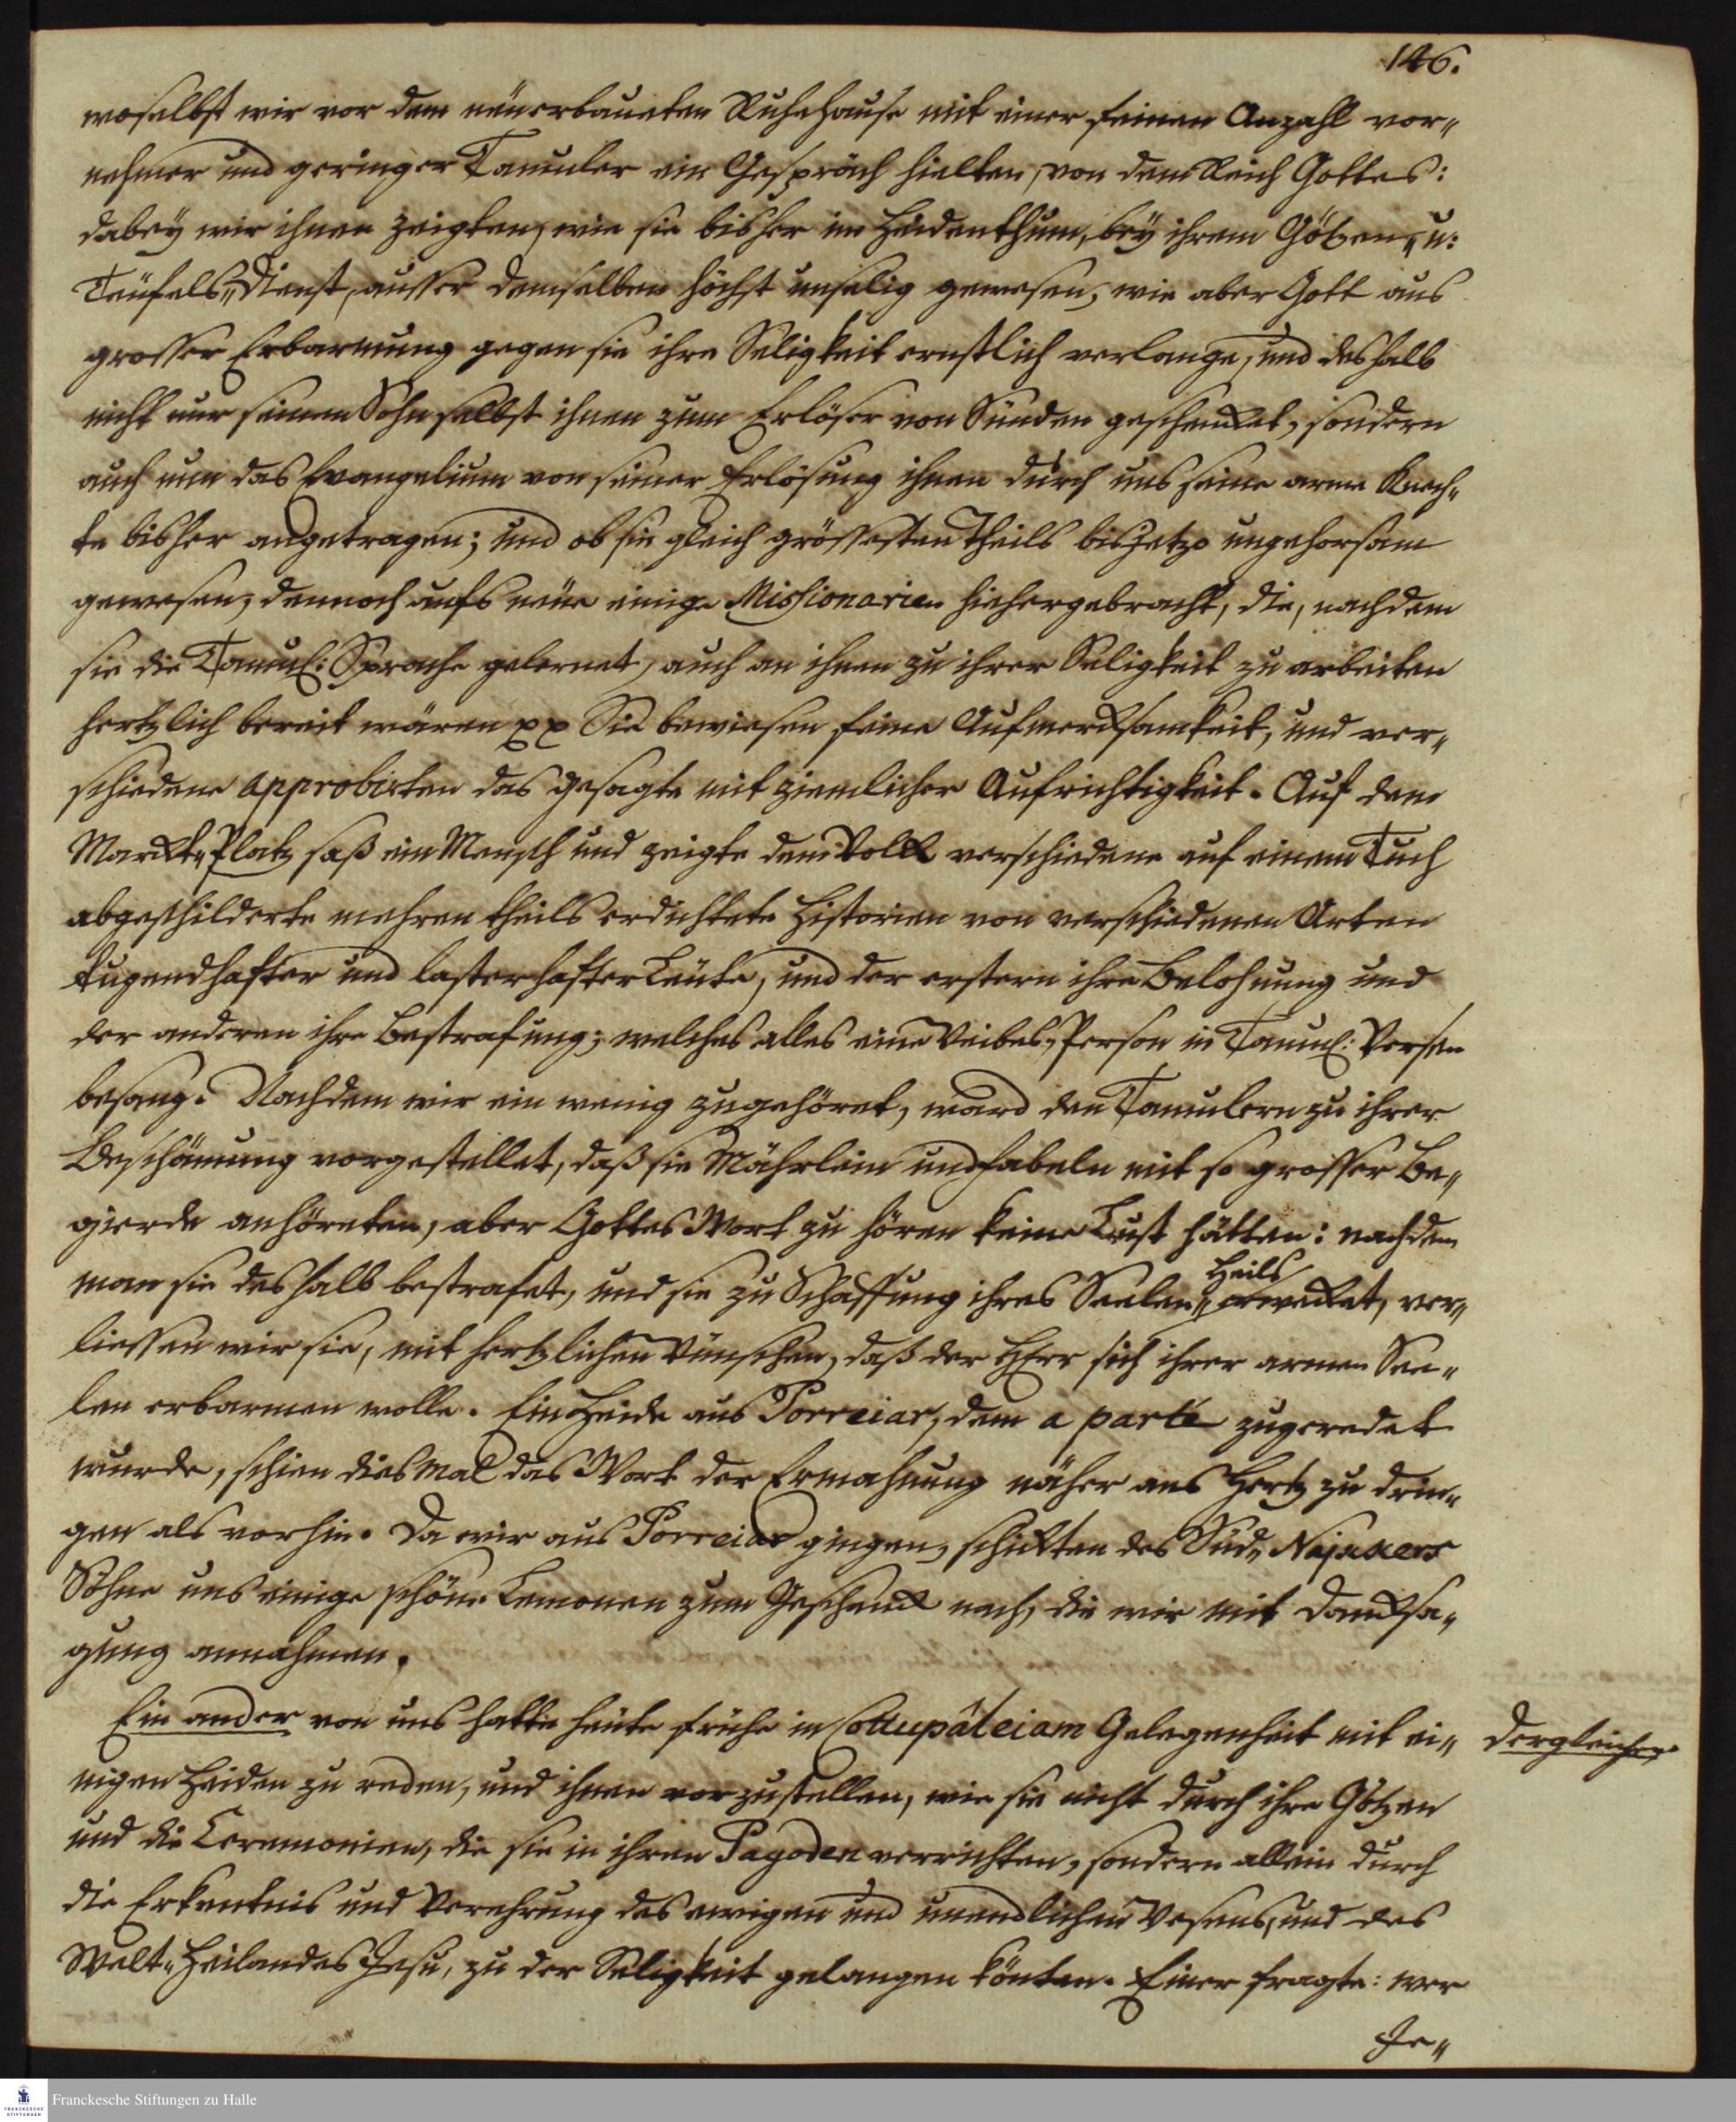 146.
woselbst wir vor dem neüerbaueten Ruhehause mit einer feinen Anzahl vor-
nehmer und geringer Tamuler ein Gespräch hielten, von dem Reich Gottes:
dabey wir ihnen zeigten, wie sie bisher im Heidenthum, bey ihrem Götzen- u:
Teüfels-Dienst, ausser demselben höchst unselig gewesen, wie aber Gott aus
grosser Erbarmung gegen sie ihre Seligkeit ernstlich verlange, und deshalb
nicht nur seinen Sohn selbst ihnen zum Erlöser von Sünden geschencket, sondern
auch nun das Evangelium von seiner Erlösung ihnen durch uns seine arme Knech-
te bisher angetragen; und ob sie gleich grössesten Theils bis jetzo ungehorsam
gewesen, dennoch aufs neüe einige Missionarien hiehergebracht, die, nachdem
sie die Tamul: Sprache gelernet, auch an ihnen zu ihrer Seligkeit zu arbeiten
hertzlich bereit wären pp Sie bewiesen feine Aufmercksamkeit, und ver-
schiedene approbirten das gesagte mit ziemlicher Aufrichtigkeit. Auf dem
Marckt-Platz saß ein Mensch und zeigte dem Volck verschiedene auf einem Tuch
abgeschilderte mehren theils erdichtete Historien von verschiedenen Arten
tugendhafter und lasterhafter Leüte, und der erstern ihre Belohnung und
der anderen ihre Bestrafung; welches alles eine Weibes-Person in Tamul: Versen
besang. Nachdem wir ein wenig zugehöret, ward den Tamulern zu ihrer
Beschämung vorgestellet, daß sie Mährlein und Fabeln mit so grosser Be-
gierde anhöreten, aber Gottes Wort zu hören keine Lust hätten: nachdem
man sie deshalb bestrafet, und sie zu Schaffung ihres Seelen-Heils erwecket, ver-
liessen wir sie, mit hertzlichen Wünschen, daß der HErr sich ihrer armen See-
len erbarmen wolle. Ein Heide aus Porreiar, dem a parte zugeredet
wurde, schien dies mal das Wort der Ermahnung näher ans Hertz zu drin-
gen als vorhin. Da wir aus Porreiar gingen, schickten des Süd- Najakers
Söhne uns einige schöne Lemonen zum Geschenck nach, die wir mit Dancksa-
gung annahmen.
Ein ander von uns hatte heüte frühe in Cottupâleiam Gelegenheit mit ei-
dergleichen
nigen Heiden zu reden, und ihnen vorzustellen, wie sie nicht durch ihre Götzen
und die Ceremonien, die sie in ihren Pagoden verrichten, sondern allein durch
die Erkentnis und Verehrung des ewigen und unendlichen Wesens, und des
Welt-Heilandes Jesu, zu der Seligkeit gelangen könten. Einer fragte: wer
Je-
Franckesche Stiftungen zu Halle
FRANCKESCHE
STIFTUNGEN